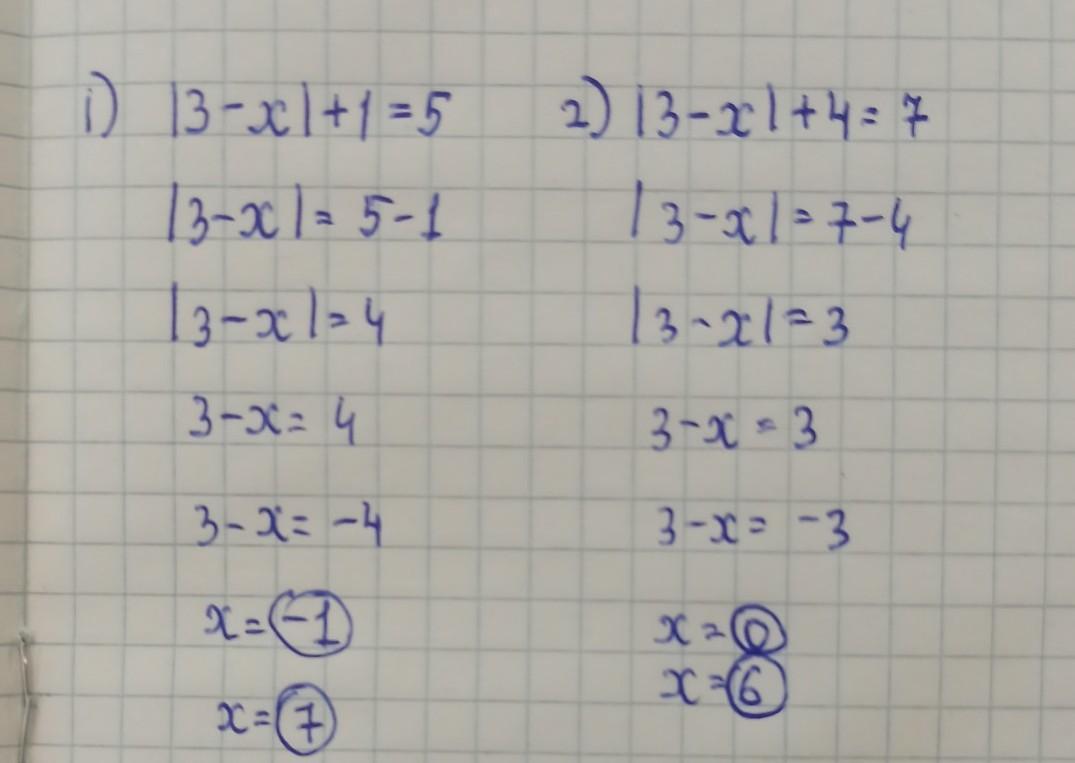 1) |3-x|+1=5
|3-x|=5-1
|3-x|=4
3-x=4
3-x=-4
x=-1
x=7
2) |3-x|+4=7
|3-x|=7-4
|3-x|=3
3-x=3
3-x=-3
x=0
x=6